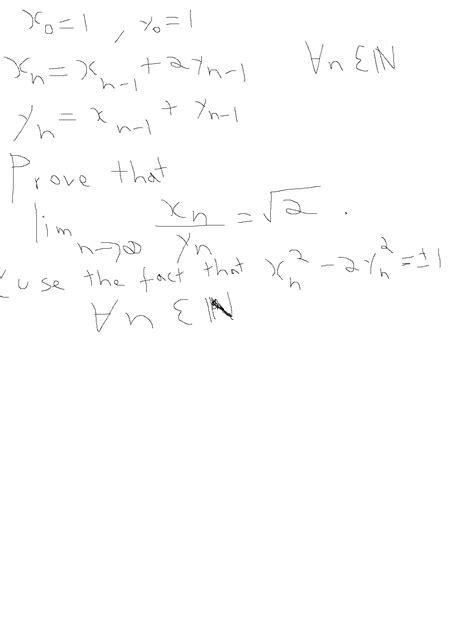 x₀ = 1 , y₀ = 1
xₙ = xₙ₋₁ + 2yₙ₋₁ ∀n ∈ ℕ
yₙ = xₙ₋₁ + yₙ₋₁
Prove that
lim n→∞ xₙ/yₙ = √2 .
use the fact that xₙ² - 2yₙ² = ±1
∀n ∈ ℕ